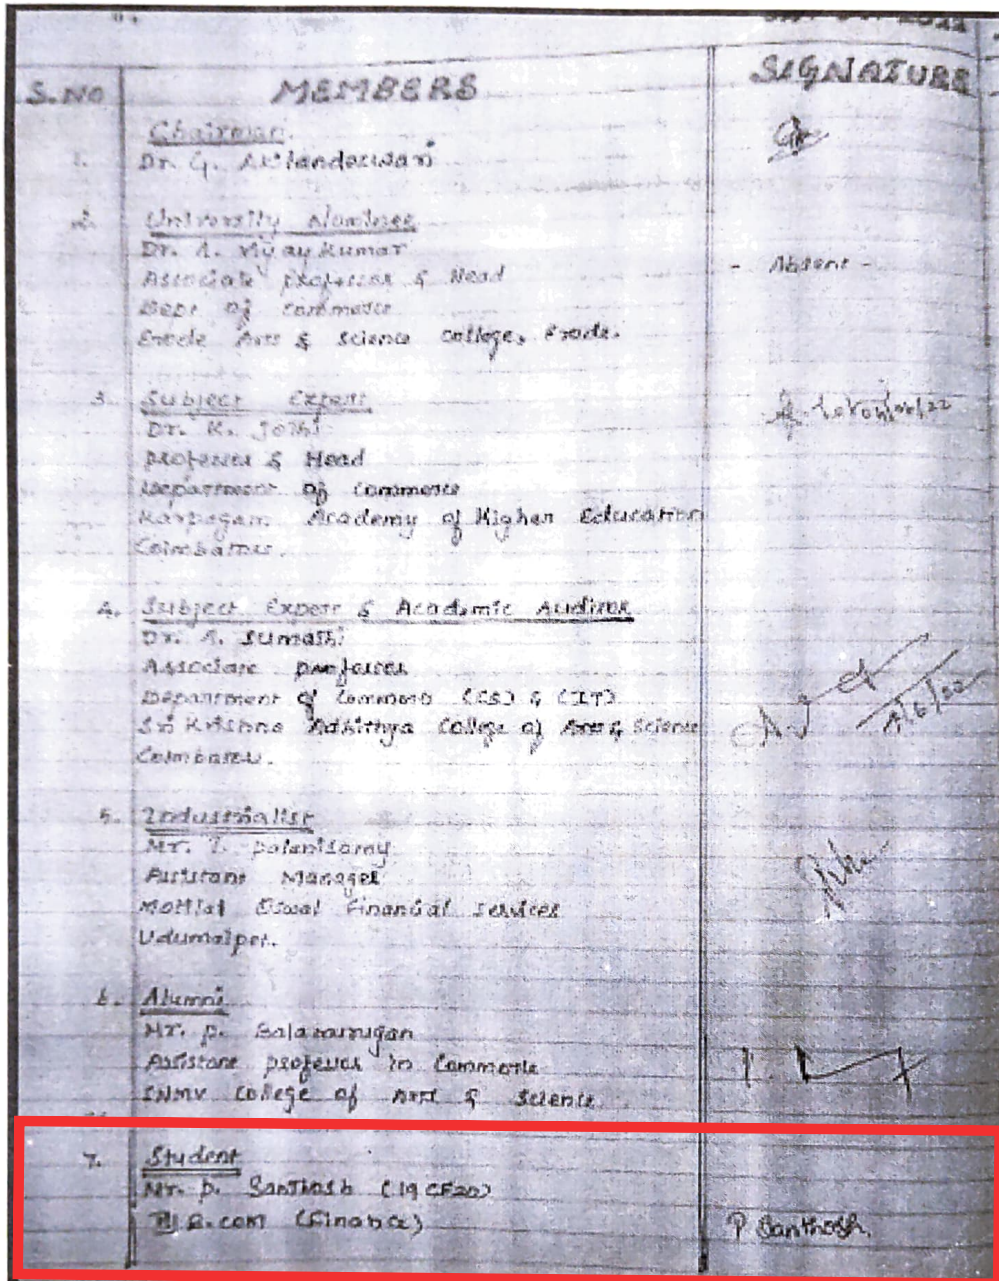 S.NO MEMBERS SIGNATURE
Chairman
1. Dr. G. Akilandeswari
2. University Nominee
Dr. A. Vijaykumar
Associate professor & Head - Absent -
Dept of commerce
Erode Arts & Science College, Erode.
3. Subject Expert
Dr. K. Jothi
professor & Head
Department of Commerce
Karpagam Academy of Higher Education
Coimbatore.
4. Subject Expert & Academic Auditor
Dr. A. Sumathi
Associate professor
Department of Commerce (CS) & (IT)
Sri Krishna Adhithya College of Arts & Science
Coimbatore.
5. Industrialist
Mr. palanisamy
Assistant Manager
Motilal Oswal Financial Services
Udumalpet.
6. Alumni
Mr. P. Balamurugan
Assistant professor in Commerce
SNMV College of Arts & Science
7. Student
Mr. P. Santhosh (19CF20)
B.com (Finance) P Santhosh.